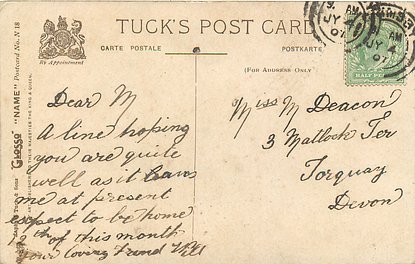 TUCK'S POST CARD
CARTE POSTALE
POSTKARTE
(FOR ADDRESS ONLY)
By Appointment
"GLOSSO" "NAME" Postcard No. N 18
THEIR MAJESTIES THE KING & QUEEN
AM
JY 4
07
AM
JY 4
07
HALF PENNY
Dear M
A line hoping
you are quite
well as it leaves
me at present
expect to be home
12th of this month
Your loving friend Will
Miss M Deacon
3 Matlock Ter
Torquay
Devon